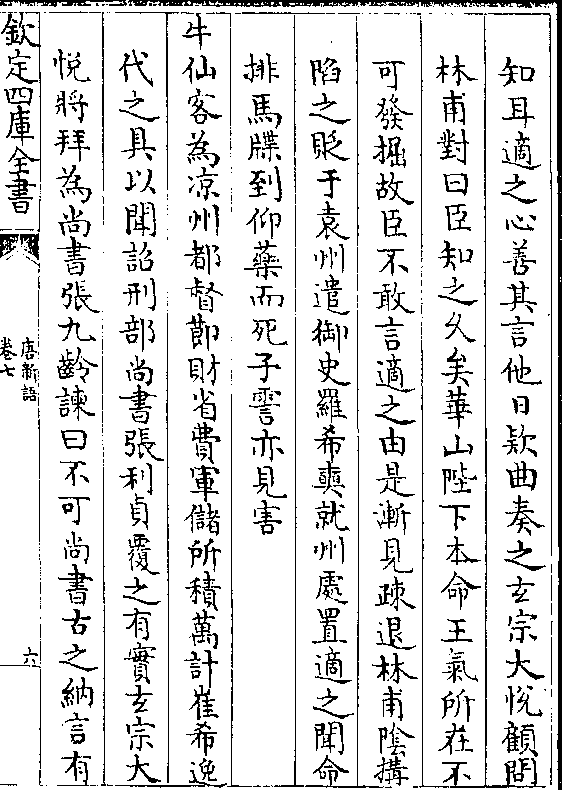 知耳適之心善其言他日欵曲奏之玄宗大悅顧問
林甫對曰臣知之久矣華山陛下本命王氣所在不
可發掘故臣不敢言適之由是漸見疎退林甫陰搆
陷之貶于袁州遣御史羅希奭就州處置適之聞命
排馬牒到仰藥而死子霅亦見害
牛仙客為凉州都督節財省費軍儲所積萬計崔希逸
代之具以聞詔刑部尚書張利貞覆之有實玄宗大
悅將拜為尚書張九齡諫曰不可尚書古之納言有
欽定四庫全書
唐新語
卷七
六